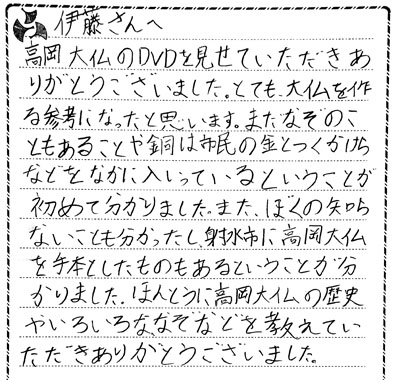 伊藤さんへ
高岡大仏のDVDを見せていただきあ
りがとうございました。とても、大仏を作
る参考になったと思います。またなぞのこ
ともあることや銅は市民の金とつくかけら
などをなかに入いっているということが
初めて分かりました。また、ぼくの知ら
ないことも分かったし、射水市に高岡大仏
を手本としたものもあるということが分
かりました。ほんとうに高岡大仏の歴史
やいろいろななぞなどを教えてい
ただきありがとうございました。